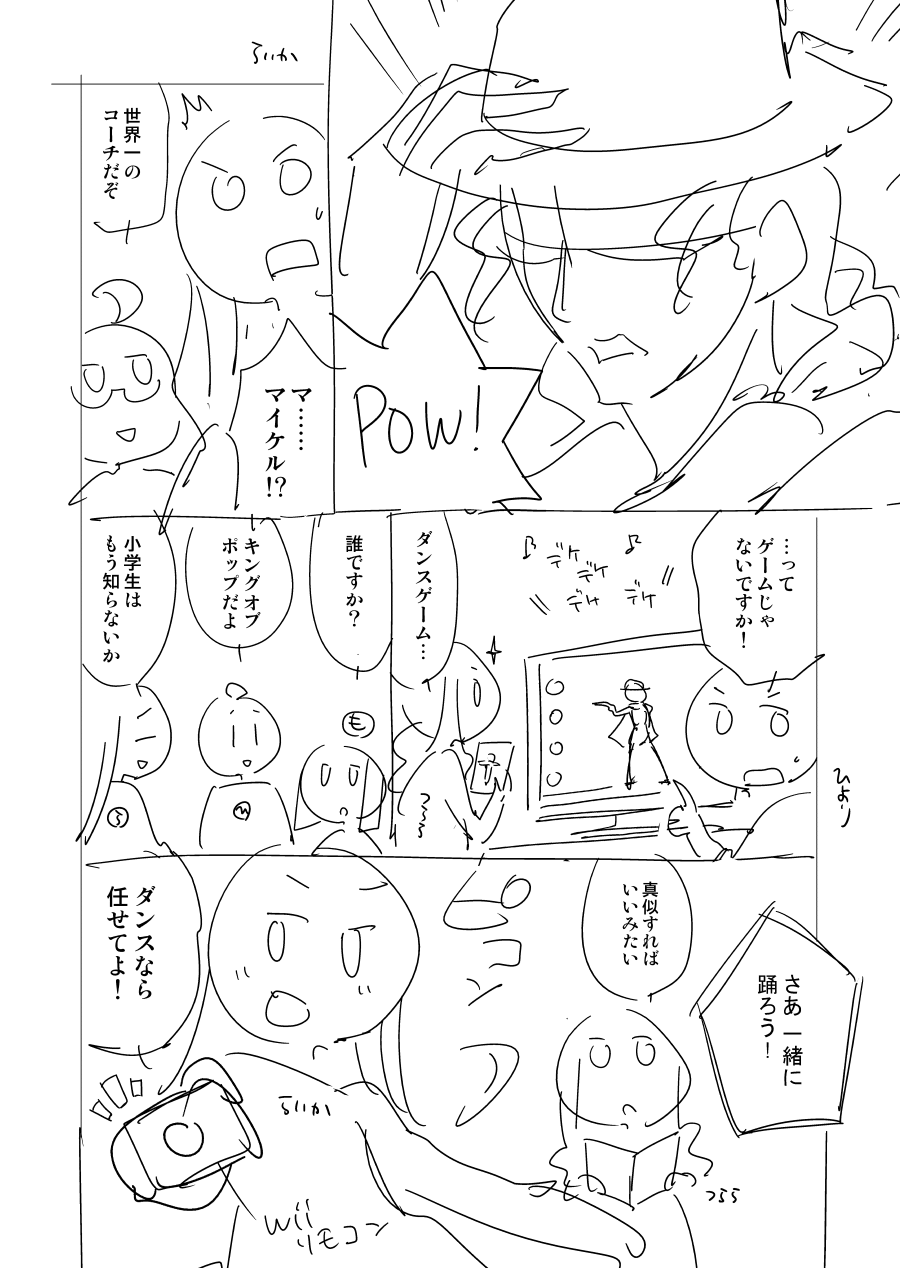 らいか
POW!
世界一の
コーチだぞ
マ……
マイケル!?
…って
ゲームじゃ
ないですか！
♪
デケ
デケ
♪
デケ
デケ
ダンスゲーム…
つらら
ひより
誰ですか？
も
キングオブ
ポップだよ
小学生は
もう知らないか
ら
さあ一緒に
踊ろう！
真似すれば
いいみたい
つらら
ダンスなら
任せてよ！
らいか
Wii
リモコン